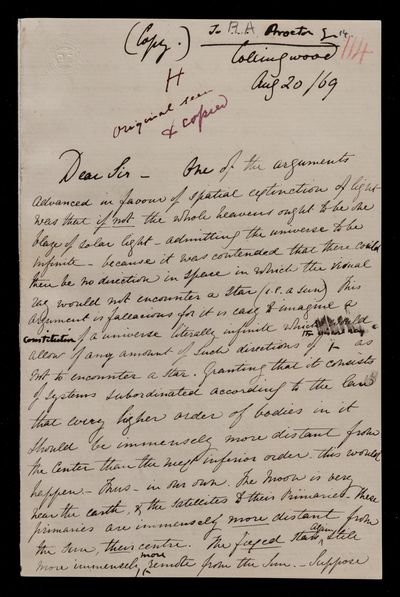 (Copy.) To R. A. Proctor Esqre
114
Collingwood
Aug 20/69
H
original seen
& copied
Dear Sir - One of the arguments
advanced in favour of spatial extinction of light
was that if not the whole heavens ought to be one
blaze of solar light - admitting the universe to be
infinite - because it was contended that there could
then be no direction in space in which the visual
ray would not encounter a star (i.e. a sun) This
argument is fallacious for it is easy to imagine a
constitution of a universe literally infinite which would
allow of any amount of such directions of as
not to encounter a star. Granting that it consists
of systems subordinated according to the law
that every higher order of bodies in it
should be immensely more distant from
the center than the next inferior order - this would
happen - Thus - in our own. The Moon is very
near the earth, & the satellites to their Primaries. These
primaries are immensely more distant from
the Sun, their centre. The fixed stars, again, still
more immensely more remote from the Sun. - Suppose